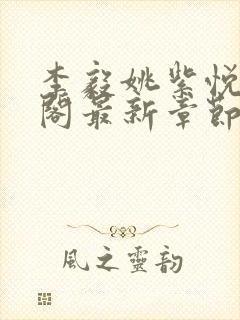 李毅姚紫悦
阁最新章節
風之靈韵